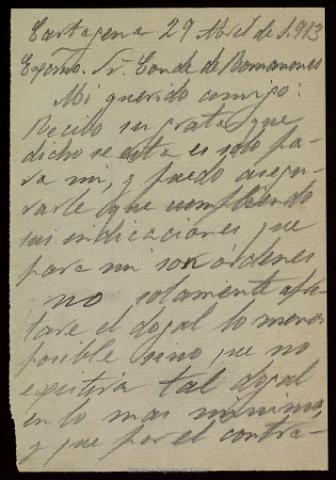 Cartagena 29 Abril de 1913
Exçmo. Sr. Conde de Romanones
Mi querido amigo:
Recibo su grata, que
dicho se esta es solo pa-
ra mi, y puedo asegu-
rarle que cumpliendo
sus indicaciones que
para mi son órdenes
no solamente apre-
tare el dogal lo menos
posible sino que no
existira tal dogal
en lo mas minimo,
y que por el contra-